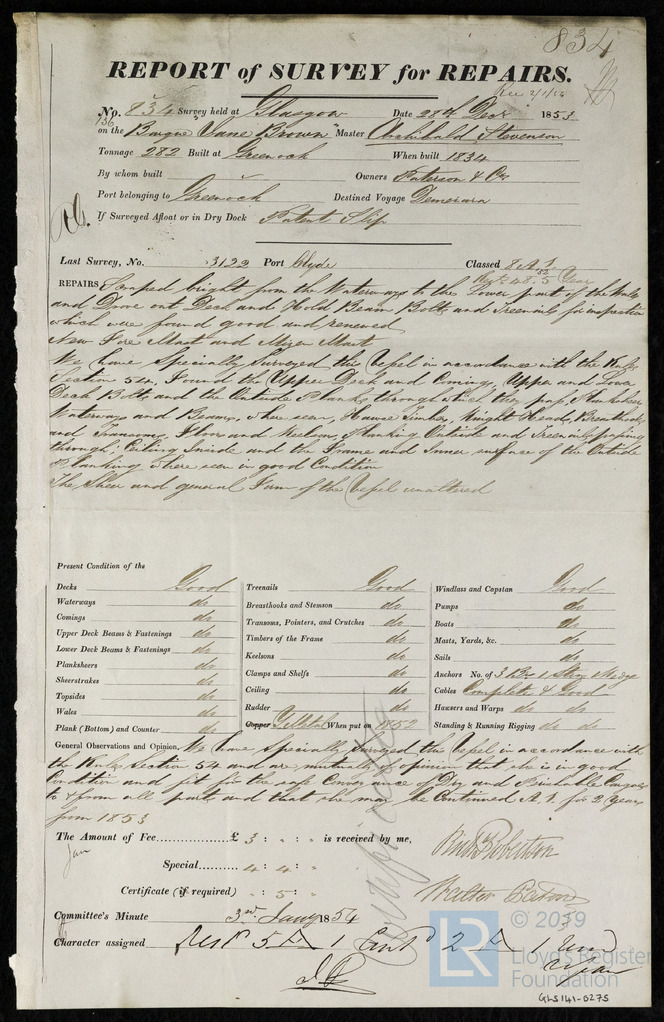 834
REPORT of SURVEY for REPAIRS.
Rec 2/1/54
No. 834 Survey held at Glasgow Date 28th Decr 1853
136
on the Barque "Jane Brown" Master Archibald Stevenson
Tonnage 282 Built at Greenock When built 1834
By whom built Owners Paterson & Co
Port belonging to Greenock Destined Voyage Demerara
If Surveyed Afloat or in Dry Dock Patent Slip
Last Survey, No. 3122 Port Clyde Classed 8 A 1
48. 5 Years
REPAIRS Scraped bright from the Waterways to the Lower part of the Wales
and Drove out Deck and Hold Beam Bolts and Treenails for inspection
which were found good and renewed
New Fore Mast and Mizen Mast
We have Specially Surveyed this Vessel in accordance with the Rules
Section 54, Found the Upper Deck and Comings, Upper and Lower
Deck Bolts and the Outside Planks through which they pass, Planksheers
Waterways and Beams, where seen, Hawse Timbers, Knight Heads, Breasthooks
and Transoms, Floors and Keelson, Planking Outside and Treenails passing
through, Ceiling Inside and the Frame and Inner surface of the Outside
Planking where seen in good Condition
The Sheer and general Form of the Vessel unaltered
Present Condition of the
Decks Good
Waterways do
Comings do
Upper Deck Beams & Fastenings do
Lower Deck Beams & Fastenings do
Planksheers do
Sheerstrakes do
Topsides do
Wales do
Plank (Bottom) and Counter do
Treenails Good
Breasthooks and Stemson do
Transoms, Pointers, and Crutches do
Timbers of the Frame do
Keelsons do
Clamps and Shelfs do
Ceiling do
Rudder do
Copper Y Metal When put on 1852
Windlass and Capstan Good
Pumps do
Boats do
Masts, Yards, &c. do
Sails do
Anchors No. of 3 Br 1 Strm 1 Kedge
Cables Complete & Good
Hawsers and Warps do do
Standing & Running Rigging do do
General Observations and Opinion, We have Specially Surveyed this Vessel in accordance with
the Rules Section 54 and are mutually of opinion that she is in good
Condition and fit for the safe Conveyance of Dry and Perishable Cargoes
to & from all parts and that she may be Continued A.1. for 2 Years
from 1853
The Amount of Fee £ 3 : " : " is received by me,
Jan
Special 4 : 4 : "
Certificate (if required) " : 5 : "
Richd Robertson
Walter Paton
Committee's Minute 3rd Jany 1854
Character assigned Rest 5 A 1 Contd 2 A 1
© 2019
LR
Lloyd's Register
Foundation
GLS141-0275